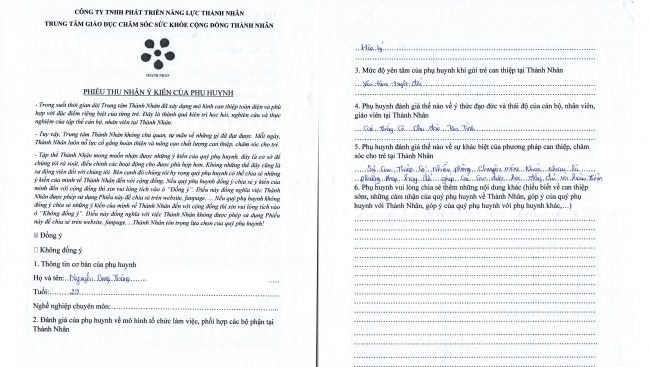 CÔNG TY TNHH PHÁT TRIỂN NĂNG LỰC THÀNH NHÂN
TRUNG TÂM GIÁO DỤC CHĂM SÓC SỨC KHỎE CỘNG ĐỒNG THÀNH NHÂN
THÀNH NHÂN
PHIẾU THU NHẬN Ý KIẾN CỦA PHỤ HUYNH
- Trong suốt thời gian dài Trung tâm Thành Nhân đã xây dựng mô hình can thiệp toàn diện và phù
hợp với đặc điểm riêng biệt của từng trẻ. Đây là thành quả kiên trì học hỏi, nghiên cứu và thực
nghiệm của tập thể cán bộ, nhân viên tại Thành Nhân.
- Tuy vậy, Trung tâm Thành Nhân không chủ quan, tự mãn về những gì đã đạt được. Mỗi ngày,
Thành Nhân luôn nỗ lực cố gắng hoàn thiện và nâng cao chất lượng can thiệp, chăm sóc cho trẻ.
- Tập thể Thành Nhân mong muốn nhận được những ý kiến của quý phụ huynh, đây là cơ sở để
chúng tôi rà soát, điều chỉnh các hoạt động cho được phù hợp hơn. Không những thế đây cũng là
sự động viên đối với chúng tôi. Bên cạnh đó chúng tôi hy vọng quý phụ huynh có thể chia sẻ những
ý kiến của mình về Thành Nhân đến với cộng đồng. Nếu quý phụ huynh đồng ý chia sẻ ý kiến của
mình đến với cộng đồng thì xin vui lòng tích vào ô "Đồng ý". Điều này đồng nghĩa việc Thành
Nhân được phép sử dụng Phiếu này để chia sẻ trên website, fanpage, ... Nếu quý phụ huynh không
đồng ý chia sẻ những ý kiến của mình về Thành Nhân đến với cộng đồng thì xin vui lòng tích vào
ô "Không đồng ý". Điều này đồng nghĩa với việc Thành Nhân không được phép sử dụng Phiếu
này để chia sẻ trên website, fanpage,... Thành Nhân tôn trọng lựa chọn của quý phụ huynh!
☑ Đồng ý
☐ Không đồng ý
1. Thông tin cơ bản của phụ huynh
Họ và tên: Nguyễn
Tuổi:
Nghề nghiệp chuyên môn:
2. Đánh giá của phụ huynh về mô hình tổ chức làm việc, phối hợp các bộ phận tại
Thành Nhân
Hợp lý
3. Mức độ yên tâm của phụ huynh khi gửi trẻ can thiệp tại Thành Nhân
Yên tâm tuyệt đối
4. Phụ huynh đánh giá thế nào về ý thức đạo đức và thái độ của cán bộ, nhân viên,
giáo viên tại Thành Nhân
Các thầy cô Chu đáo, Tận Tình
5. Phụ huynh đánh giá thế nào về sự khác biệt của phương pháp can thiệp, chăm
sóc cho trẻ tại Thành Nhân
Can Thiệp nhiều phòng Chuyên môn Khác nhau
phương pháp hay để giúp các Con được
6. Phụ huynh vui lòng chia sẻ thêm những nội dung khác (hiểu biết về can thiệp
sớm, những cảm nhận của quý phụ huynh về Thành Nhân, góp ý của quý phụ
huynh với Thành Nhân, góp ý của quý phụ huynh với phụ huynh khác,...)